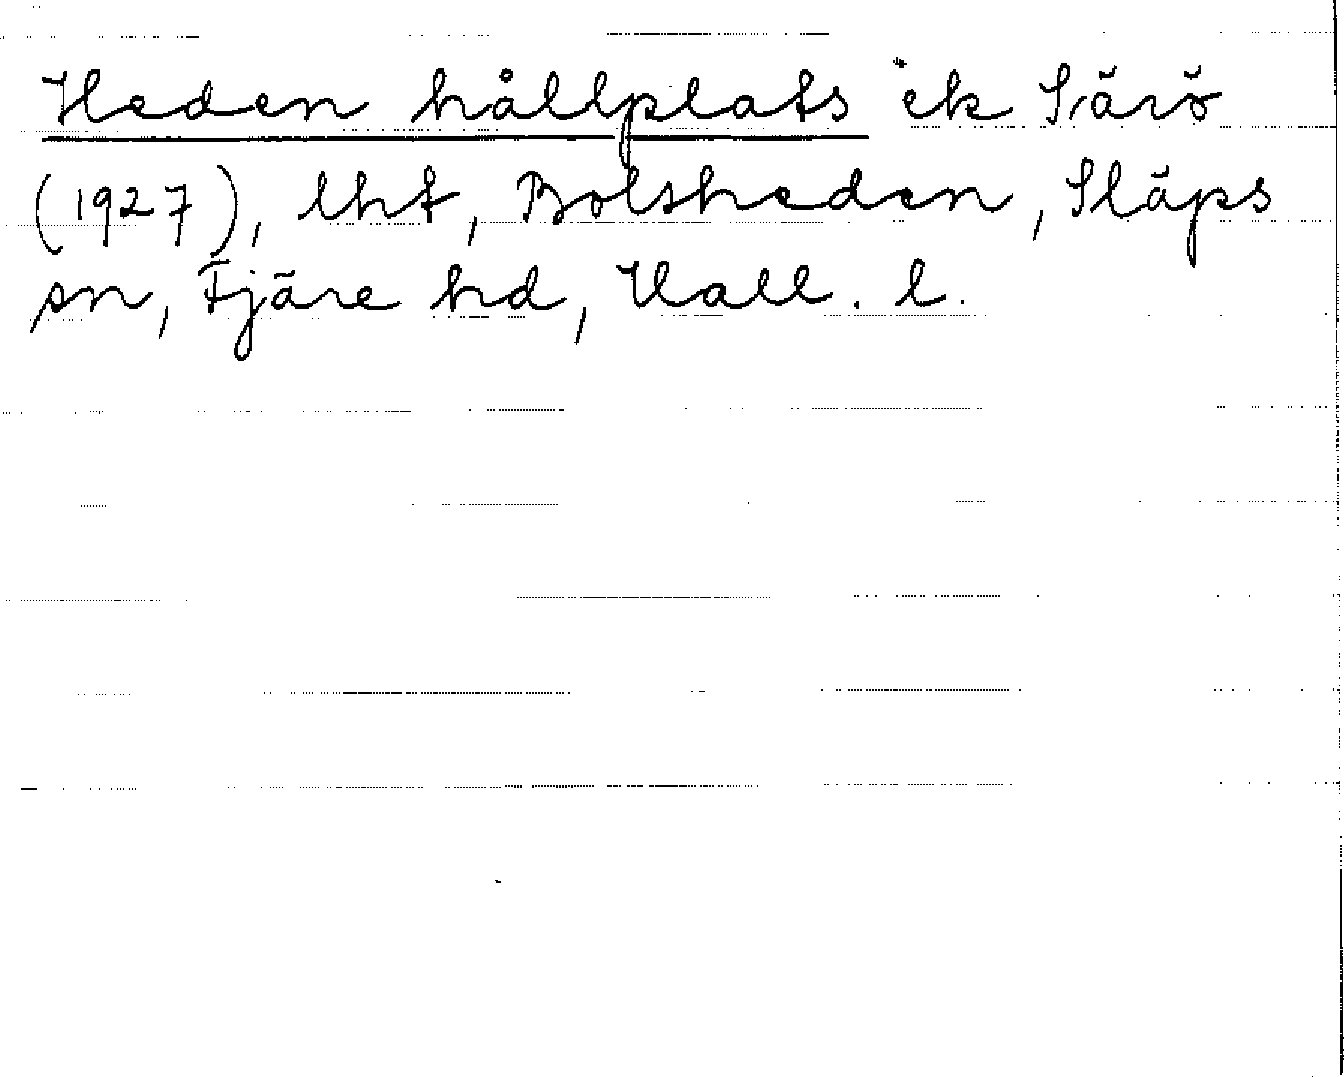 Heden hållplats ek Särö
(1927), lht, Bolsheden, Släps
sn, Fjäre hd, Hall. l.